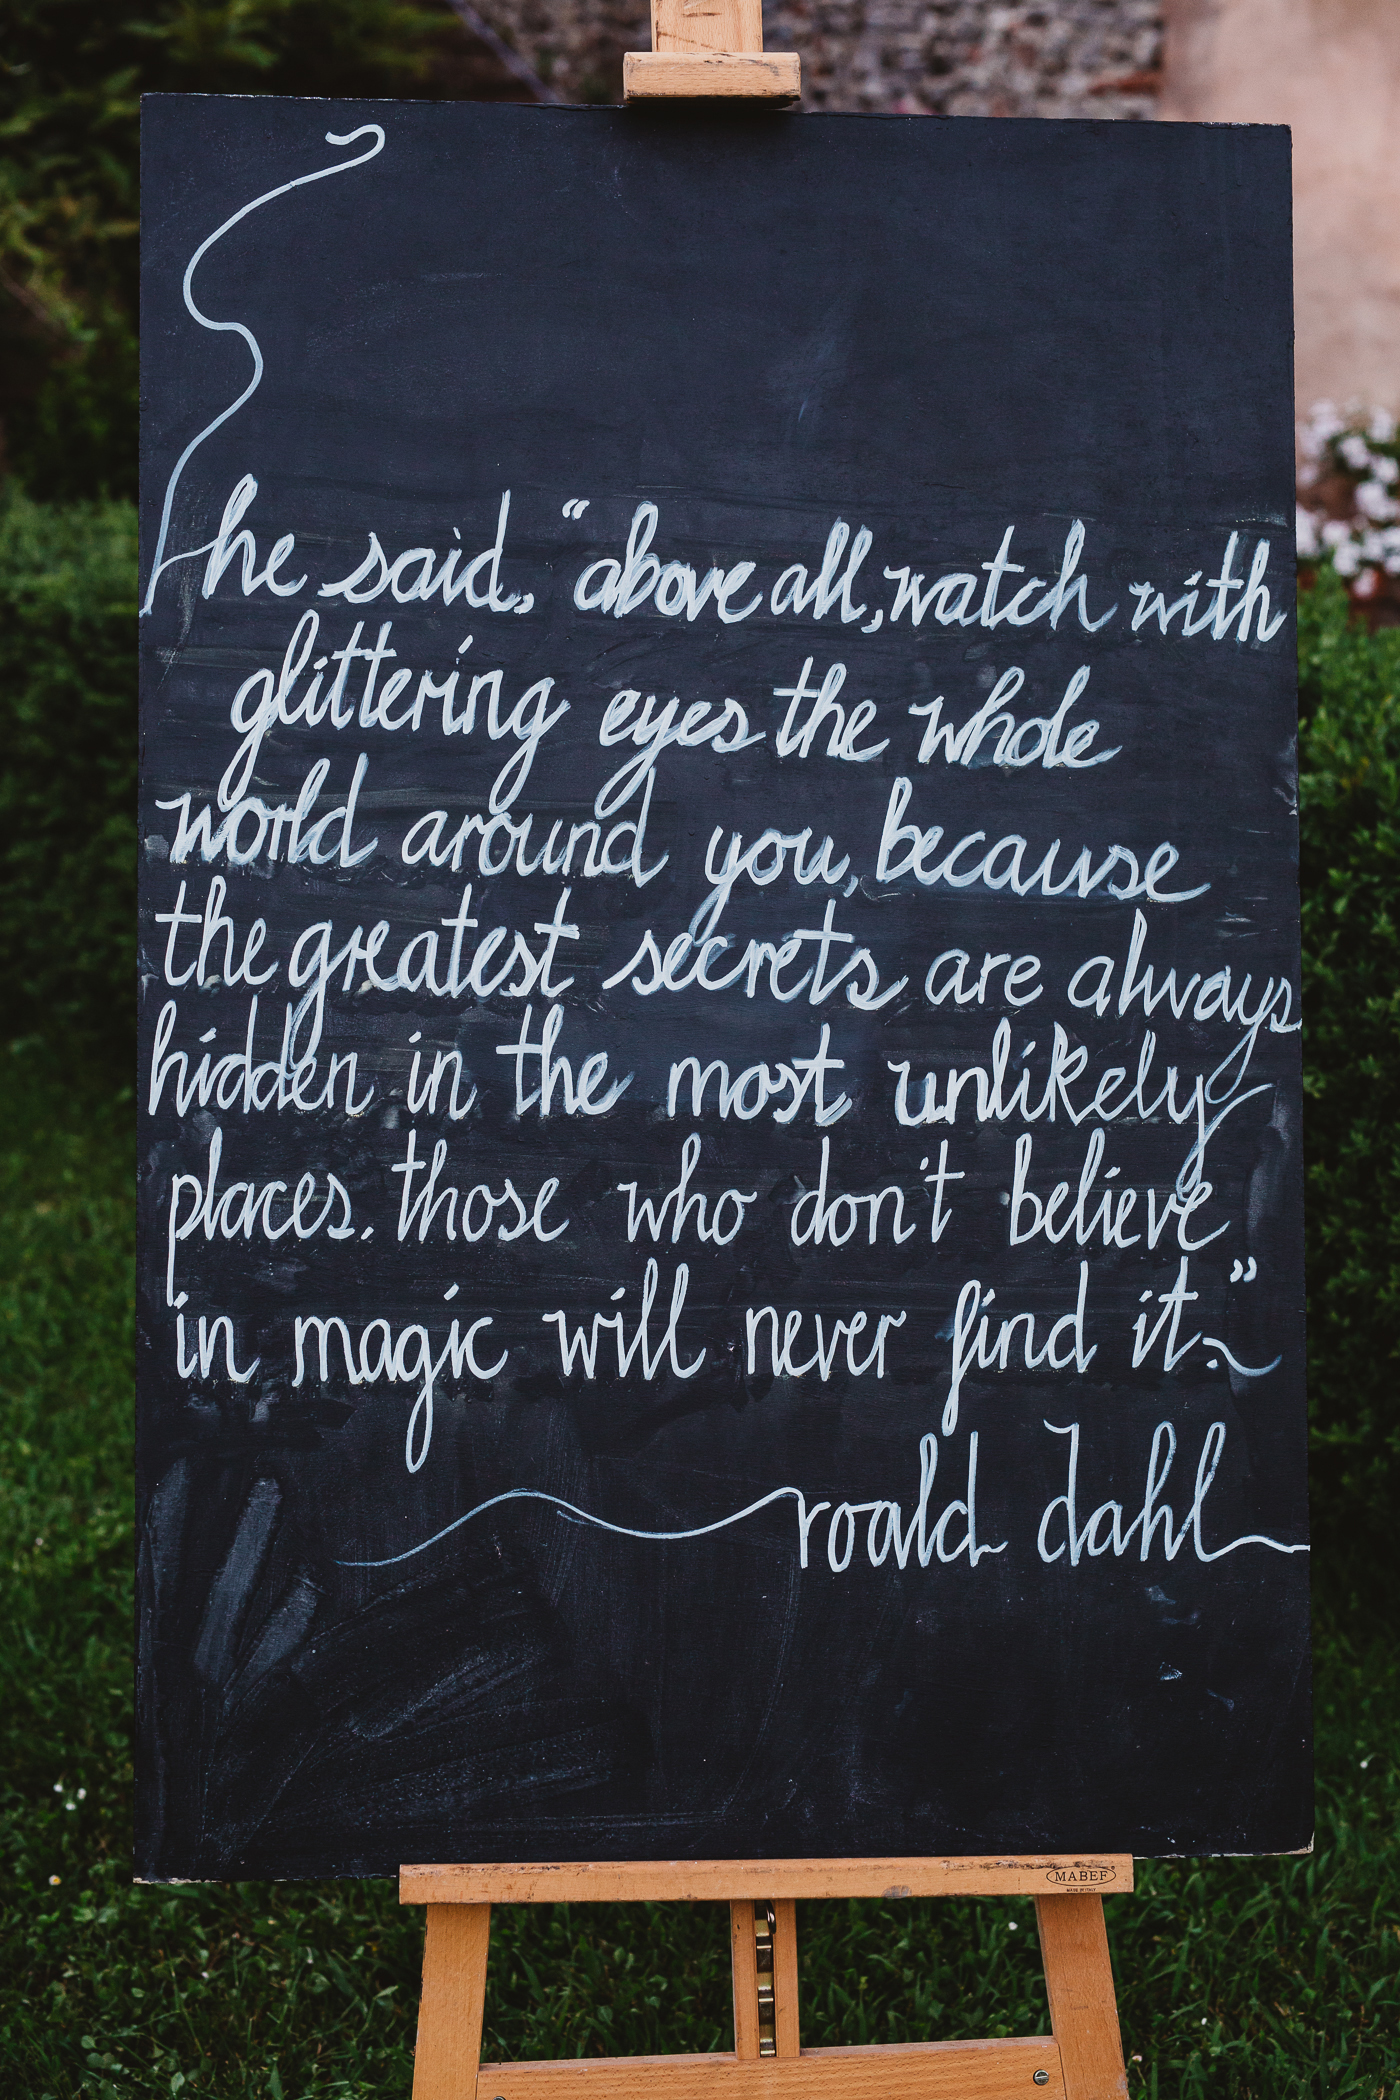 he said, "above all, watch with
glittering eyes the whole
world around you, because
the greatest secrets are always
hidden in the most unlikely
places. those who don't believe
in magic will never find it."
roald dahl
MABEF
MADE IN ITALY